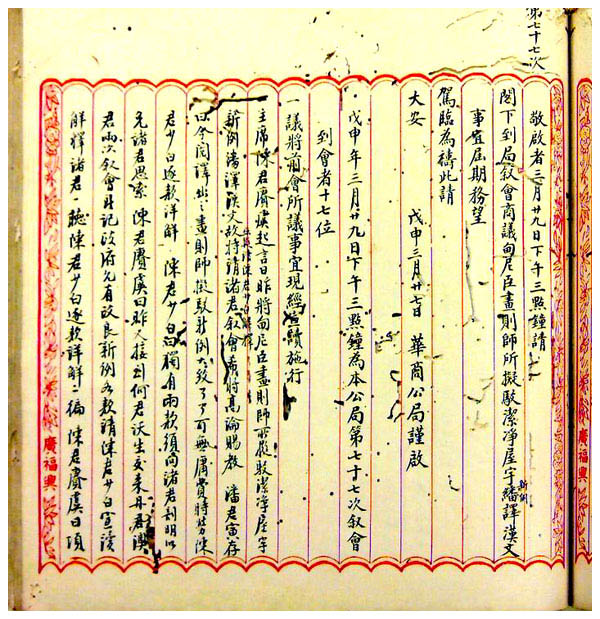 第七十七次
敬啟者三月廿九日下午三點鐘請
閣下到局叙會商議向尼臣畫則師所擬駁潔净屋宇新例繙譯漢文
事宜屆期務望
駕臨為禱此請
大安　戊申三月廿七日　華商公局謹啟
戊申年三月廿九日下午三點鐘為本公局第七十七次叙會
到會者十七位
一議將前會所議事宜現經宣讀施行
主席陳君賡虞起言曰昨將向尼臣畫則師所擬駁潔净屋宇
新例繙譯漢文故特請諸君叙會希將高論賜教　潘君寅存
曰今閱譯出之畫則師擬駁新例大致了了可無庸費時勞陳
君少白逐款詳解　陳君少白曰獨有兩款須向諸君刋明以
免諸君思索　陳君賡虞曰昨又接到何君沃生交來
君兩次叙會日記政府允有改良新例各款請陳君少白宣讀
解釋諸君一聽陳君少白逐款詳解一徧　陳君賡虞曰項
廣福興
廣福興